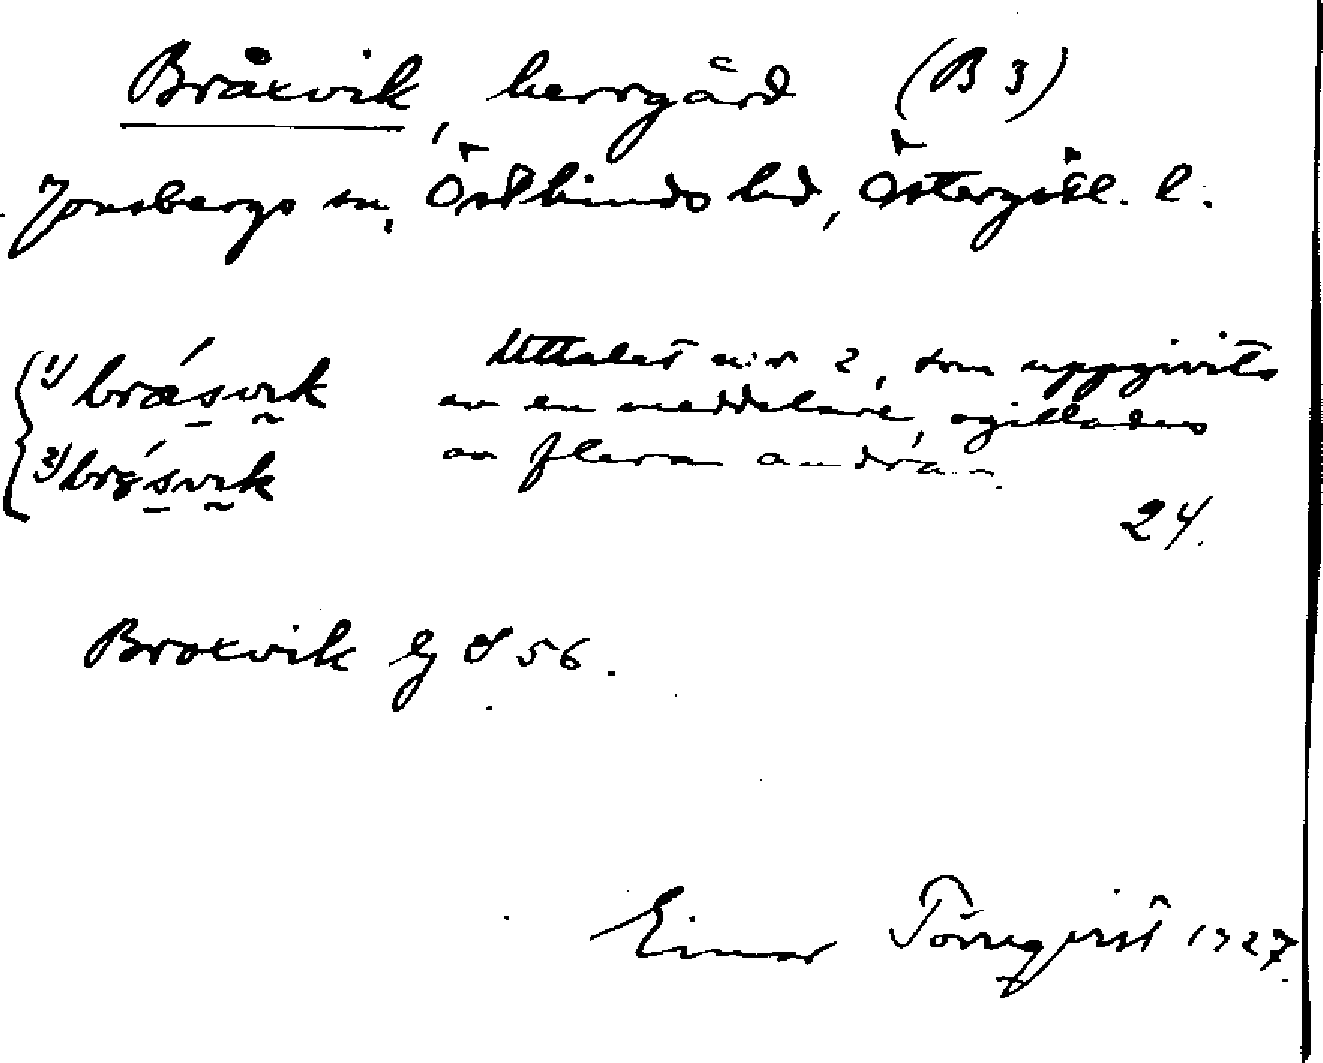 Bråxvik, herrgård (B 3)
Jonsbergs sn, Östkinds hd, Östergötl. l.
1) bråsvik Uttalet n:r 2, som uppgivits
av en meddelare, ogillades
2) brosvik av flera andra.
24.
Broxvik Ej d 56.
Einar Törnqvist 1927